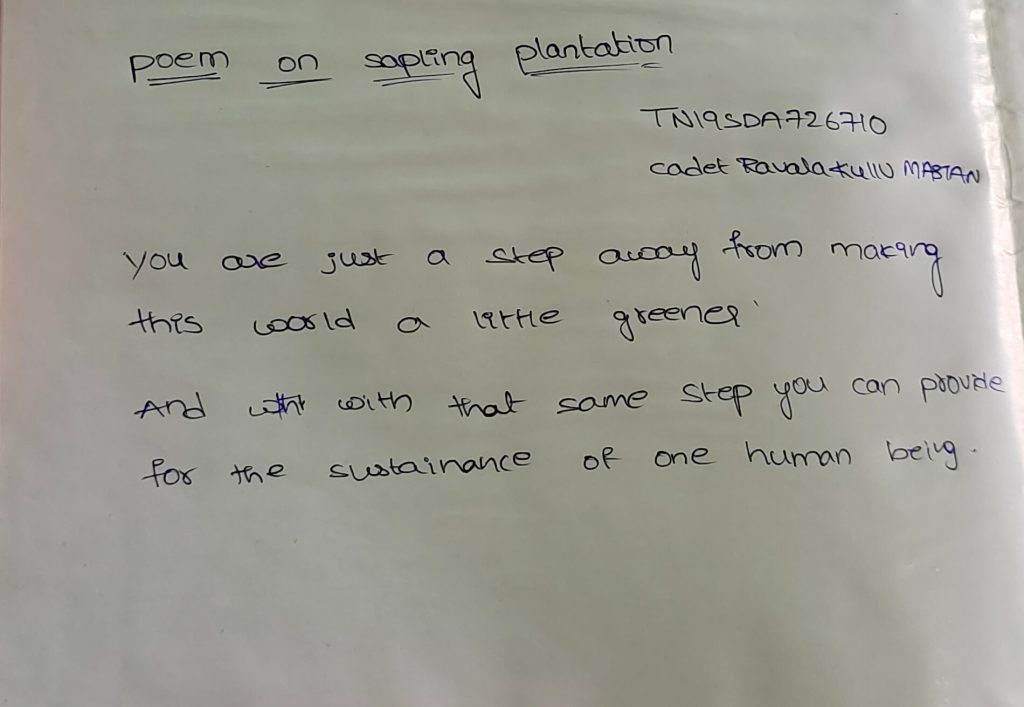 poem on sapling plantation
TN19SDA726710
cadet Ravalakullu MASTAN
you are just a step away from making
this world a little greener
And with that same step you can provide
for the sustainance of one human being.